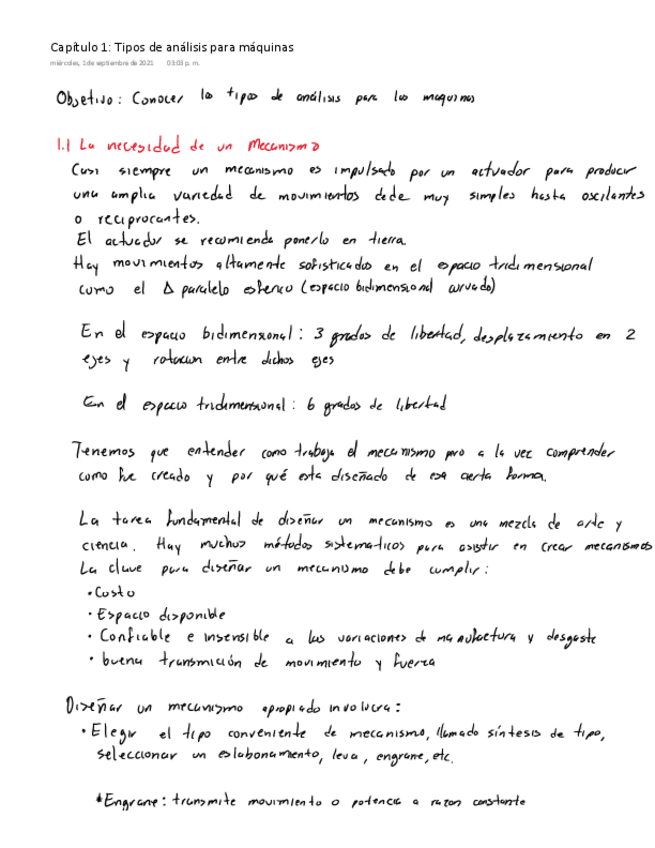 Capítulo 1: Tipos de análisis para máquinas
miércoles, 1 de septiembre de 2021 03:03 p. m.
Objetivo: Conocer los tipos de análisis para las maquinas
1.1 La necesidad de un Mecanismo
Casi siempre un mecanismo es impulsado por un actuador para producir
una amplia variedad de movimientos dede muy simples hasta oscilantes
o reciprocantes.
El actuador se recomienda ponerlo en tierra
Hay movimientos altamente sofisticados en el espacio tridimensional
como el Δ paralelo esferico (espacio bidimensional curvado)
En el espacio bidimensional: 3 grados de libertad, desplazamiento en 2
ejes y rotacion entre dichos ejes
En el espacio tridimensional: 6 grados de libertad
Tenemos que entender como trabaja el mecanismo pero a la vez comprender
como fue creado y por qué esta diseñado de esa cierta forma.
La tarea fundamental de diseñar un mecanismo es una mezcla de arte y
ciencia. Hay muchos métodos sistematicos para asistir en crear mecanismos
La clave para diseñar un mecanismo debe cumplir:
• Costo
• Espacio disponible
• Confiable e insensible a las variaciones de manufactura y desgaste
• buena transmición de movimiento y fuerza
Diseñar un mecanismo apropiado involucra:
• Elegir el tipo conveniente de mecanismo, llamado síntesis de tipo,
seleccionar un eslabonamiento, leva, engrane, etc.
*Engrane: transmite movimiento o potencia a razon constante